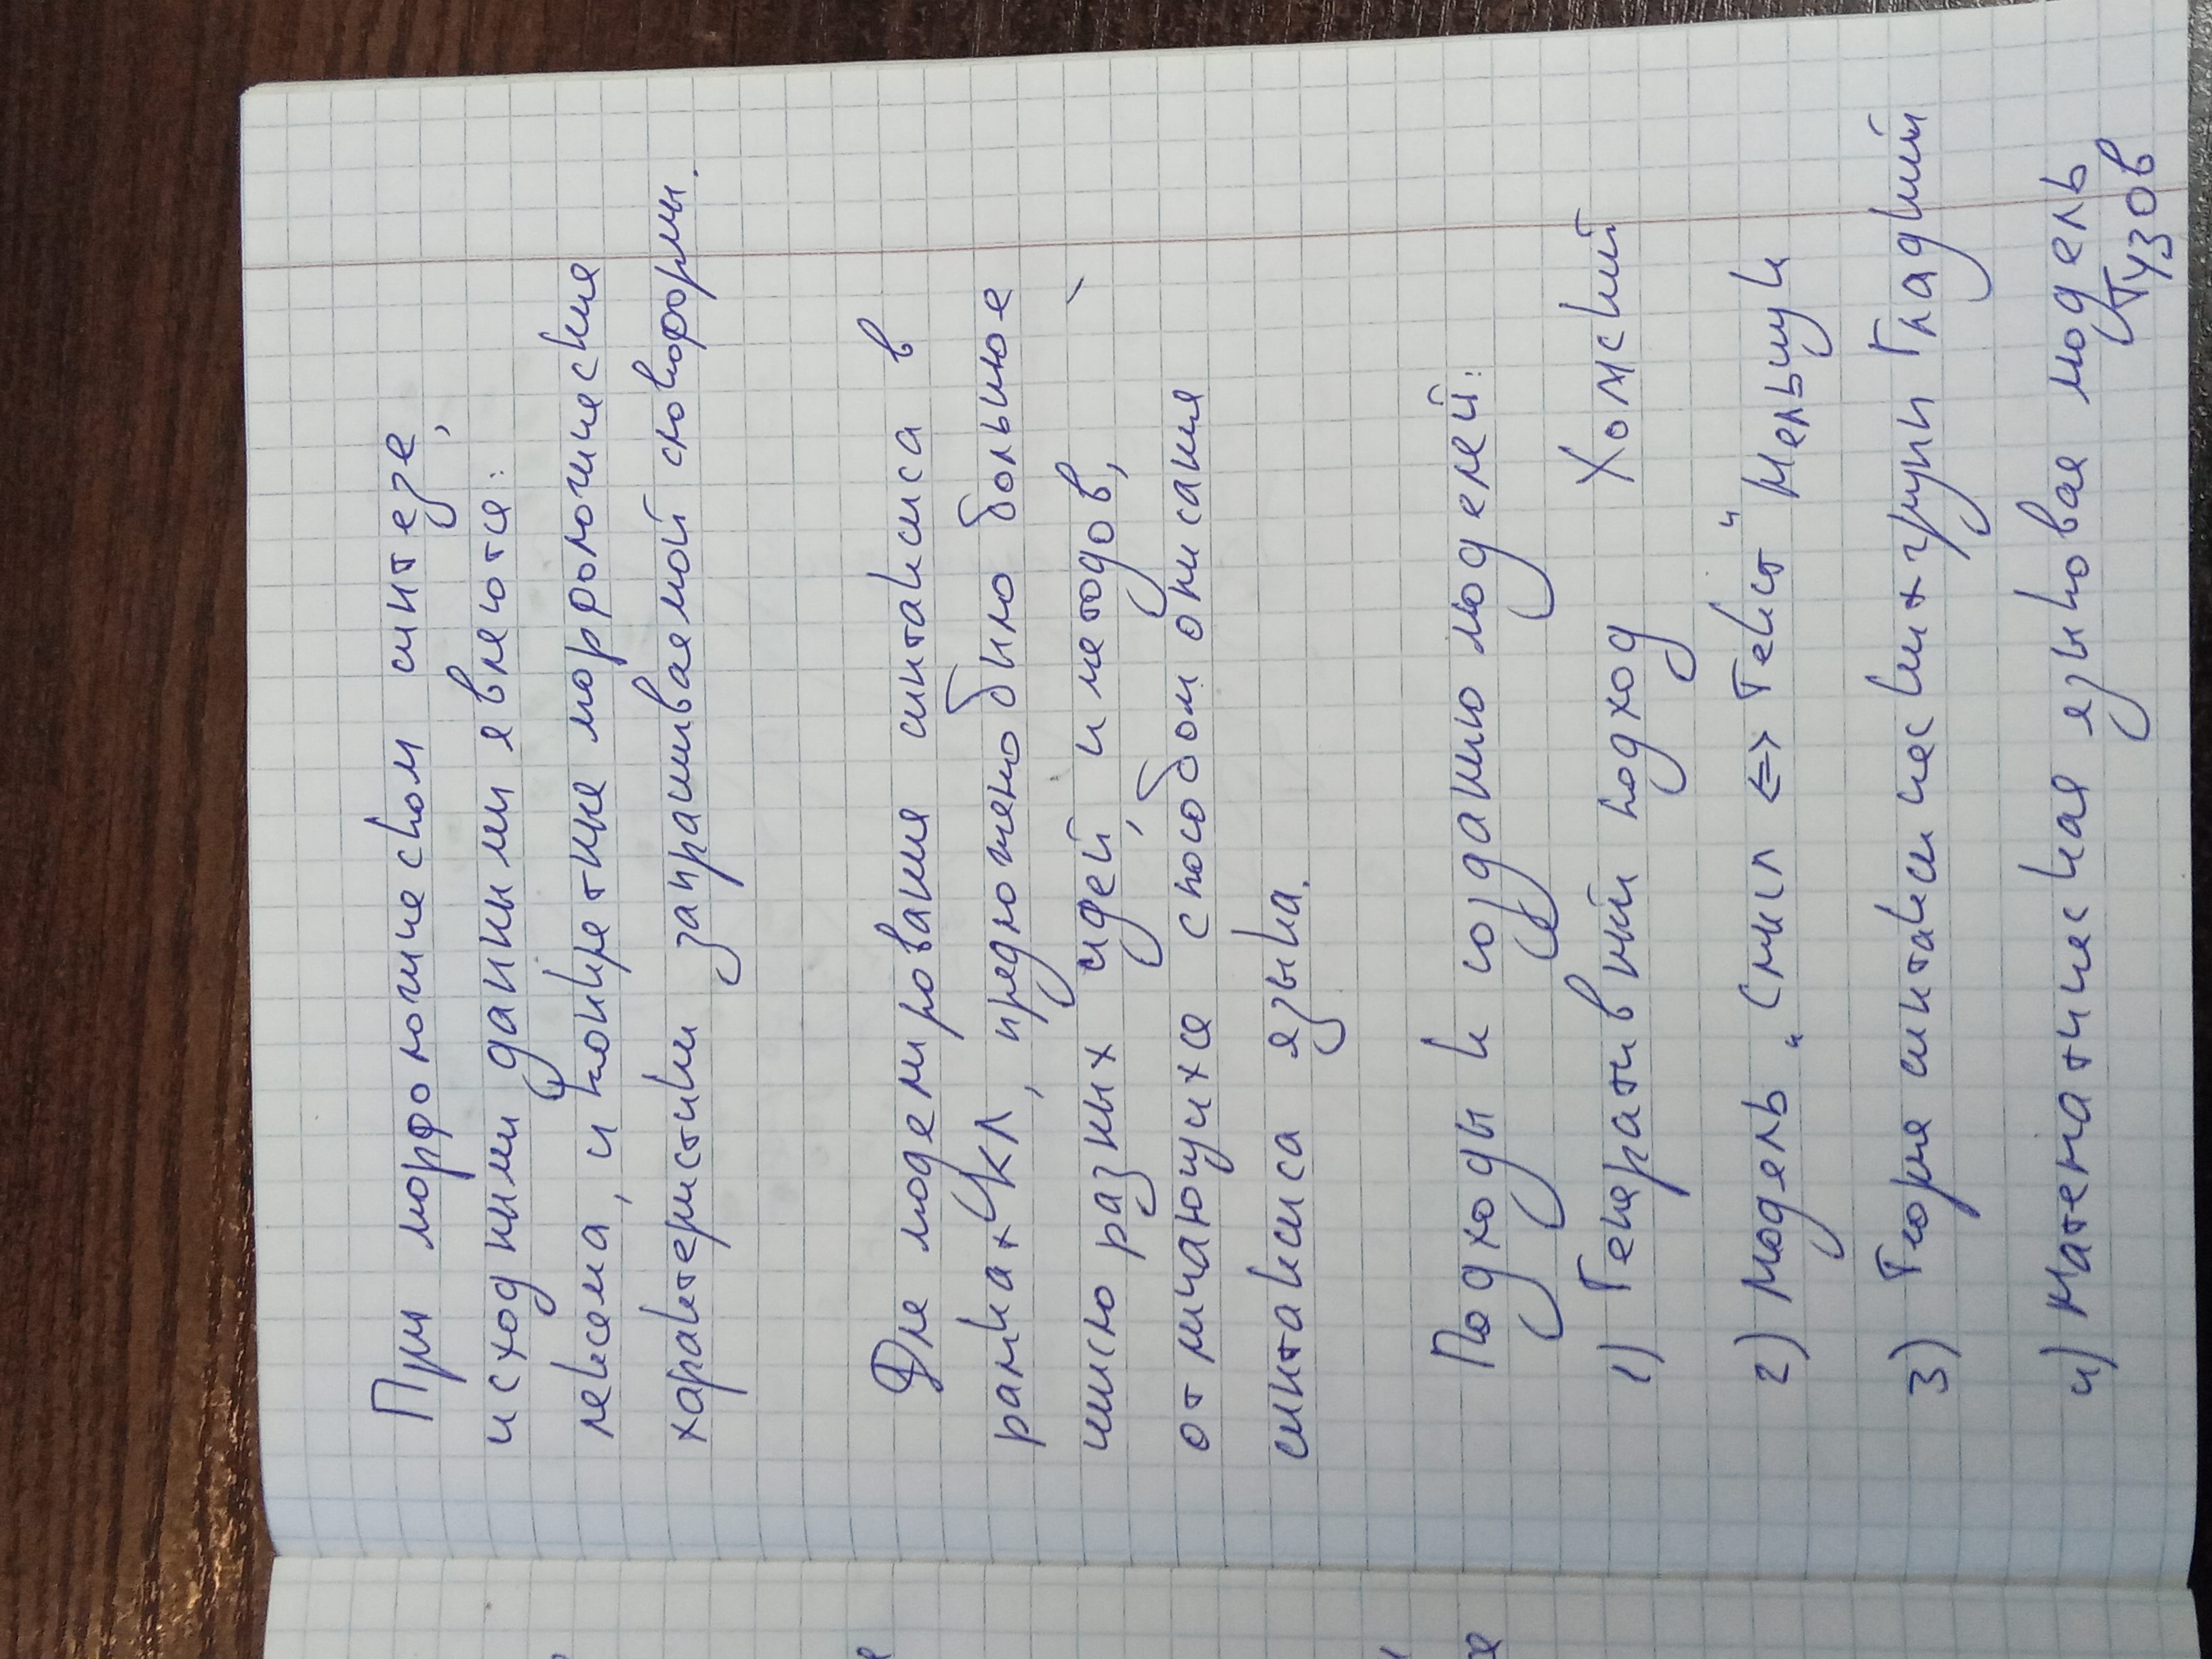 При морфологическом синтезе,
исходными данными являются:
лексема, и конкретные морфологические
характеристики запрашиваемой словоформы.
Для моделирования синтаксиса в
рамках КЛ, предложено было большое
число разных идей, и методов,
отличающихся способом описания
синтаксиса языка.
Подходы к созданию моделей:
1) Генеративный подход Хомский
2) Модель „Смысл <=> Текст" Мельчук
3) Теория синтаксических групп Гладкий
4) Математическая языковая модель
Тузов